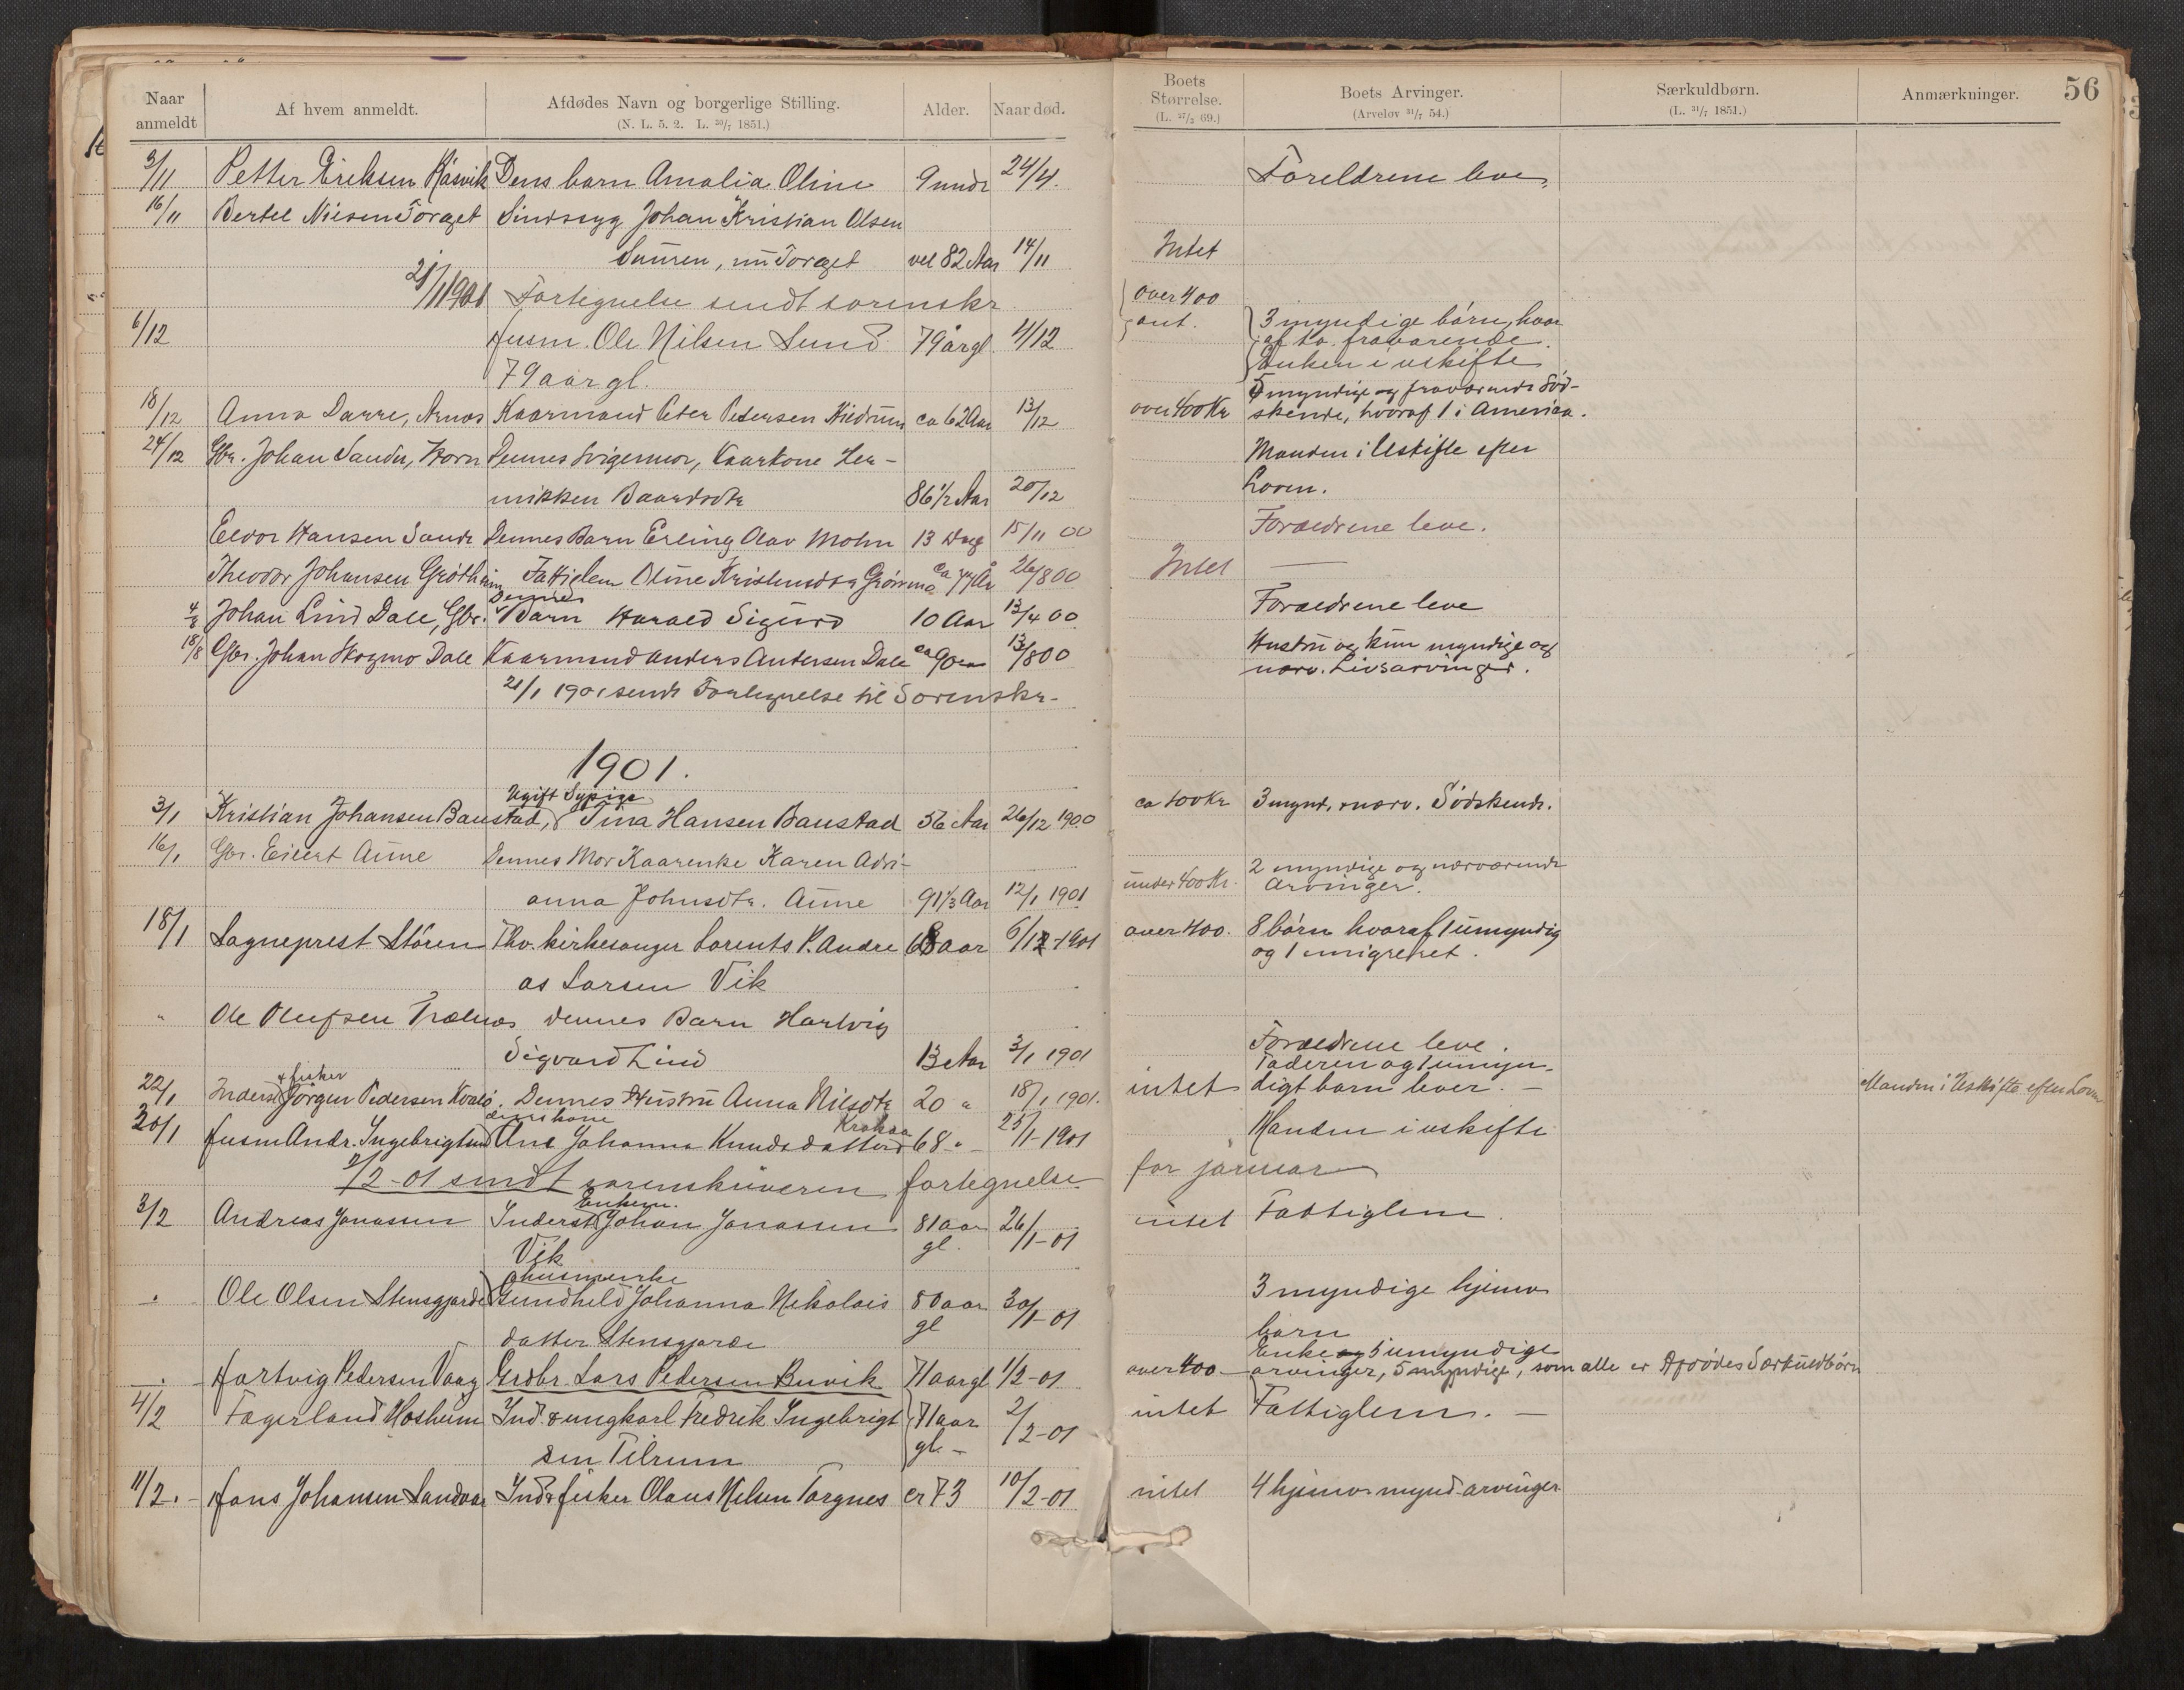 Naar anmeldt
Af hvem anmeldt.
Afdødes Navn og borgerlige Stilling.
(N. L. 5. 2. L. 20/7 1851.)
Alder.
Naar død.
Boets Størrelse.
Boets Arvinger.
(Arvelov 31/7 54.)
Særkuldbørn.
(L. 31/7 1851.)
Anmærkninger.
56
3/11 Petter Eriksen Råsvik Dens barn Amalia Oline 9 mndr 24/4. Foreldrene leve,
16/11 Bertel Nilsen Torget Sindssyg Johan Kristian Olsen
Sumen, nu Torget vel 82 Aar 14/11 Intet
21/1 1901 Fortegnelse sendt sorenskr
6/12 Husm. Ole Nilsen Sund 79 år gl. 4/12 over 400 ant. 3 myndige børn, hvor
af to fraværende.
79 aar gl. Enken i uskifte
18/12 Anna Darre, Arnøs Kaarmand Peter Petersen Hiedrum ca 62 Aar 13/12 over 400 Kr 5 myndige og fraværende Sød-
skende, hvoraf 1 i America.
24/12 Gbr. Johan Sandn, Horn Dennes Svigermor, Kaarkone Hen- Manden i Uskifte efter
nikken Baardsdtr 86 1/2 Aar 20/12 Loven.
Elvor Hansen Sandr Dennes Barn Erling Olav Mohn 13 Dag 15/11 00 Forældrene leve.
Theodor Johansen Grøtheim Fattiglem Oline Kristensdtr ca 77 År 26/8 00 Intet —
4/8 Johan Lind Dale, Gbr. Dennes Barn Harald Sigurd 10 Aar 13/4 00 Forældrene leve
18/8 Gbr. Johan Skogmo Dale Kaarmand Anders Andersen Dale ca 90 13/8 00 Hustru og kun myndige og
nærv. Livsarvinger.
21/1 1901 sendt Fortegnelse til Sorenskr-
1901.
Ugift Sypige
3/1 Kristian Johansen Baustad, Tina Hansen Baustad 56 Aar 26/12 1900 ca 400 Kr 3 mynd. nærv. Sødskende.
16/1 Gbr. Eilert Aune Dennes Mor Kaarenke Karen Adri- 2 myndige og nærværende
anna Johnsdtr. Aune 91 1/3 Aar 12/1 1901 under 400 Kr. Arvinger.
18/1 Sogneprest Stören Fhv. kirkesanger Lorents P. Andre 68 aar 6/1 1901 over 400. 8 børn hvoraf 1 umyndig
as Larsen Vik og 1 emigreret.
" Ole Olufsen Trælnes dennes Barn Hartvig
Sigvard Lind 13 Aar 3/1 1901 Forældrene leve.
22/1 Inderst + fisker Jørgen Pedersen Kvalø. Dennes Hustru Anna Nilsdtr 20 " 18/1 1901. intet Faderen og 1 umyn-
digt barn lever. — Manden i Uskifte efter Loven
30/1 Husm Andr. Ingebrigtsen Ane Johanna Knudsdatter 68 " 25/1-1901 Manden i uskifte
2/2-01 sendt sorenskriveren fortegnelse for januar
3/2 Andreas Jonassen Inderst Enkem. Johan Jonassen 81 aar gl. 26/1-01 intet Fattiglem.
Vik
husmenke
" Ole Olsen Stensgjorde Gundhild Johanna Nikolais 80 aar gl 30/1-01 3 myndige hjemv
datter Stensgjorde børn
" Hartvig Pedersen Vaag Grdbr. Lars Pedersen Buvik 71 aar gl 1/2-01 over 400 - Enke og 5 umyndige
arvinger, 5 myndige, som alle er Afdødes Særkuldbørn
4/2 Fagerland Mosheim Ind. & ungkarl Fredrik Ingebrigt 71 aar gl. - 2/2-01 intet Fattiglem. —
sen Tilrum
11/2.- Hans Johansen Sandvær Ind & fisker Olaus Nilsen Torgnes er 73 10/2-01 intet 4 hjemv. mynd arvinger